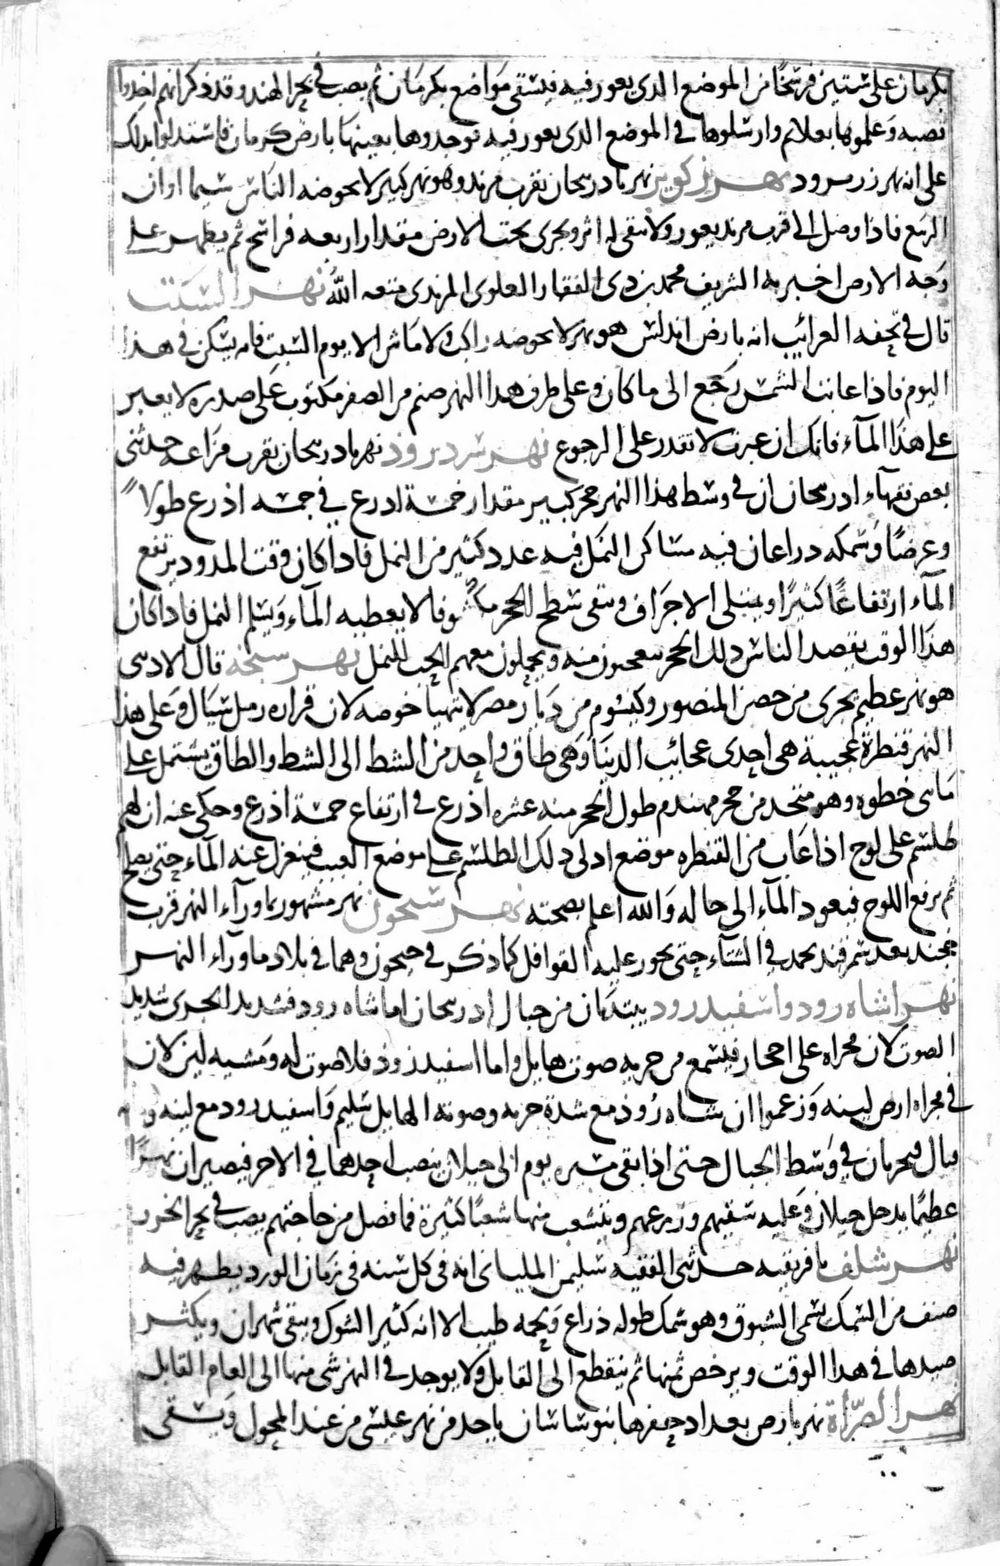 بكرمان على ستين فرسخا من الموضع الذى يغور فيه فيسقى مواضع بكرمان ثم يصب فى بحر الهند وقد ذكر انهم اخذوا
قصبه وعلموها بعلائم وارسلوها فى الموضع الذى يغور فيه فوجدوها بعينها بارض كرمان فاستدلوا بذلك
على انه نهر زرمرود نهر زكوير نهر باذربيجان بقرب مرند وهو نهر كبير لا يخوضه الناس سيما اوان
الربيع فاذا وصل الى قرب مرند يغور ولا يبقى له اثر ويجرى تحت الارض مقدار اربعه فراسخ ثم يظهر على
وجه الارض اخبر به الشريف محمد بن ذى الفقار العلوى المرندى متعه الله نهر السبت
قال فى تحفه الغرائب انه بارض اندلس هو نهر لا يخوضه راكب ولا ماش الا يوم السبت فانه يسكن فى هذا
اليوم فاذا غابت الشمس رجع الى ما كان وعلى طرف هذا النهر صنم من الصفر مكتوب على صدره لا يعبر
على هذا المآء فانك ان عبرت لا تقدر على الرجوع نهر سردرود نهر باذربيجان بقرب مراغه حدثنى
بعض فقهآء اذربيجان ان فى وسط هذا النهر حجر كبير مقدار خمسة اذرع فى خمسه اذرع طولا
وعرضا وسمكه ذراعان فيه مساكن النمل فيه عدد كثير من النمل فاذا كان وقت المدود يرتفع
المآء ارتفاعا كثيرا ويمتلى الاجراف ويبقى سطح الحجر مكشوفا لا يغطيه المآء ويسلم النمل فاذا كان
هذا الوقت يقصد الناس ذلك الحجر يتعجبون منه ويحملون معهم الحب للنمل نهر سنجه قال الاديبى
هو نهر عظيم يجرى من حصن المنصور وكيسوم من ديار مصر لا يتهيا خوضه لان قراره رمل سيال وعلى هذا
النهر قنطرة عجيبة هى احدى عجائب الدنيا وهى طاق واحد من الشط الى الشط والطاق يشتمل على
مايتى خطوه وهو متخذ من حجر مهندم طول الحجر منه عشره اذرع فى ارتفاع خمسة اذرع وحكى عنه ان لهم
طلسم على لوح اذا عاب من القنطره موضع ادلى ذلك الطلسم على موضع العيب فينعزل عنه المآء حتى يصلح
ثم يرفع اللوح فيعود المآء الى حاله والله اعلم بصحته نهر سيحون نهر مشهور بماورآء النهر قرب
خجند بعد سمرقند يجمد فى الشتآء حتى يجوز عليه القوافل كما ذكر فى جيحون وهما فى بلاد ماورآء النهر
نهر شاه رود واسفيد رود يبتديان من جبال اذربيجان اما شاه رود فشديد الجرى شديد
الصوت لان مجراه على احجار فيسمع من جريه صوت هايل واما اسفيد رود فلا صوت له ومشيه لين لان
فى مجراه ارض لينه وزعموا ان شاه رود مع شدة جريه وصوته الهايل سليم واسفيد رود مع لينه
قتال ويجريان فى وسط الجبال حتى اذا بقى مسيره يوم الى جيلان ينصب احدهما فى الاخر فيصيران نهرا
عظيما يدخل جيلان وعليه سقيهم وزرعهم ويتشعب منها شعبا كثيرة فما فضل من حاجتهم يصب فى بحر الخزر
نهر شلف بافريقيه حدثنى الفقيه سليمن الملياني انه فى كل سنه فى زمان الورد يظهر فيه
صنف من السمك يسمى الشبوق وهو سمك طوله ذراع ولحمه طيب الا انه كثير الشوك ويبقى شهران ويكثر
صيدها فى هذا الوقت ويرخص ثمنها ثم ينقطع الى القابل ولا يوجد فى النهر شى منها الى العام القابل
نهر الصراة نهر بارض بغداد حفرها بنو ساسان ياخذ من نهر عيسى من عند المحول ويسقى